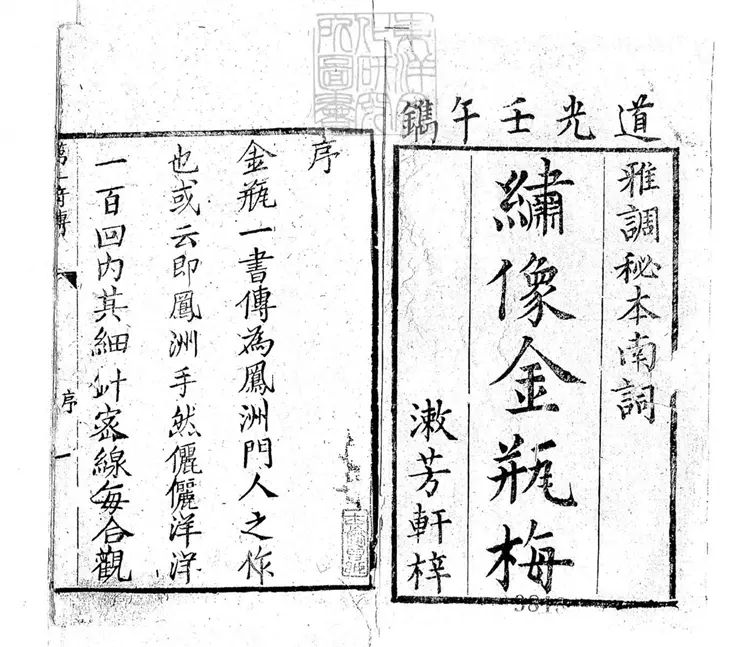 道光壬午鐫
雅調秘本南詞
繡像金瓶梅
漱芳軒梓
序
金瓶一書傳為鳳洲門人之作
也或云即鳳洲手然儷儷洋洋
一百回內其細針密線每合觀
序 一